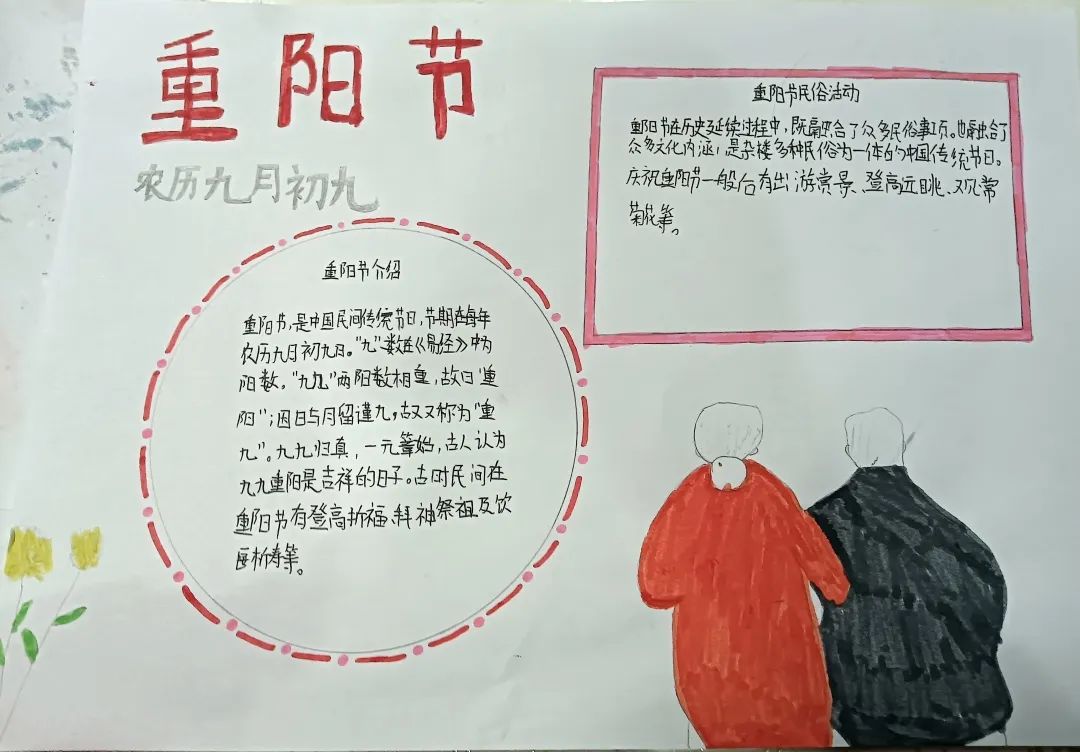 重阳节
农历九月初九
重阳节介绍
重阳节,是中国民间传统节日,节期在每年
农历九月初九日。"九"数在《易经》中为
阳数。"九九"两阳数相重,故曰"重
阳";因日与月留谨九,故又称为"重
九"。九九归真,一元肇始,古人认为
九九重阳是吉祥的日子。古时民间在
重阳节有登高祈福、拜神祭祖及饮
祈寿等。
重阳节民俗活动
重阳节在历史延续过程中,既融合了众多民俗事项。也融合了
众多文化内涵,是杂楼多种民俗为一体的中国传统节日。
庆祝重阳节一般会有出游赏景、登高远眺、观赏
菊花等。